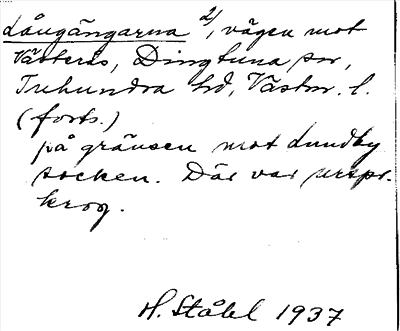 Långängarna 2/, vägen mot
Västerås, Dingtuna sn,
Tuhundra hd, Västm. l.
(forts.)
på gränsen mot Lundby
socken. Där var urspr.
krog.
H. Ståhl 1937